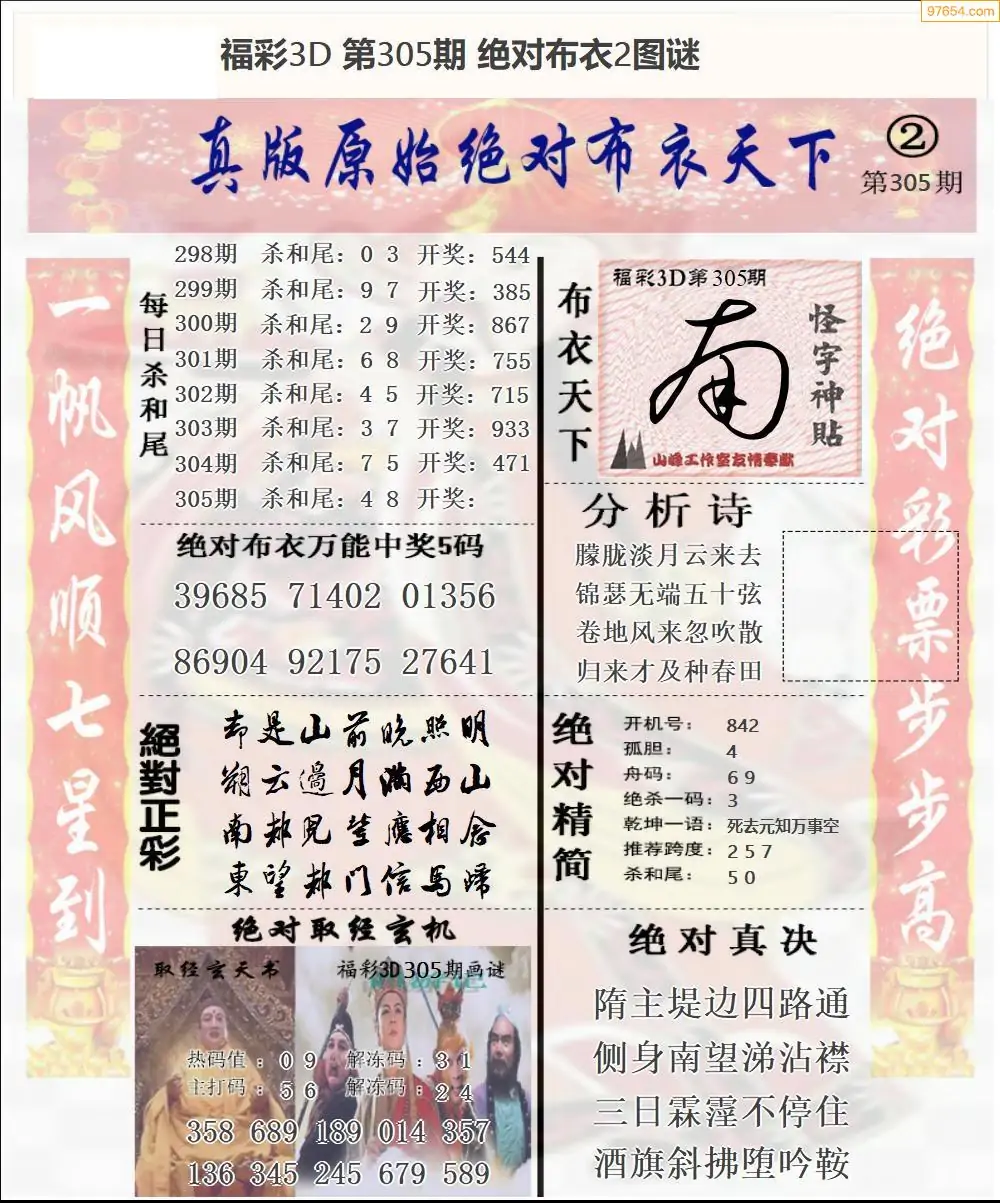 97654.com
福彩3D 第305期 绝对布衣2图谜
真版原始绝对布衣天下
②
第305期
一帆风顺七星到
每日杀和尾
298期 杀和尾：0 3 开奖：544
299期 杀和尾：9 7 开奖：385
300期 杀和尾：2 9 开奖：867
301期 杀和尾：6 8 开奖：755
302期 杀和尾：4 5 开奖：715
303期 杀和尾：3 7 开奖：933
304期 杀和尾：7 5 开奖：471
305期 杀和尾：4 8 开奖：
绝对布衣万能中奖5码
39685 71402 01356
86904 92175 27641
絕對正彩
却是山前晚照明
朔云边月满西山
南都见望应相念
東望都门信马歸
绝对取经玄机
取经玄天书
福彩3D305期画谜
热码值：0 9 解冻码：3 1
主打码：5 6 解冻码：2 4
358 689 189 014 357
136 345 245 679 589
布衣天下
福彩3D第305期
南
怪字神貼
山峰工作室友情奉献
分析诗
朦胧淡月云来去
锦瑟无端五十弦
卷地风来忽吹散
归来才及种春田
绝对精简
开机号：842
孤胆：4
舟码：6 9
绝杀一码：3
乾坤一语：死去元知万事空
推荐跨度：2 5 7
杀和尾：5 0
绝对真决
隋主堤边四路通
侧身南望涕沾襟
三日霖霪不停住
酒旗斜拂堕吟鞍
绝对彩票步步高